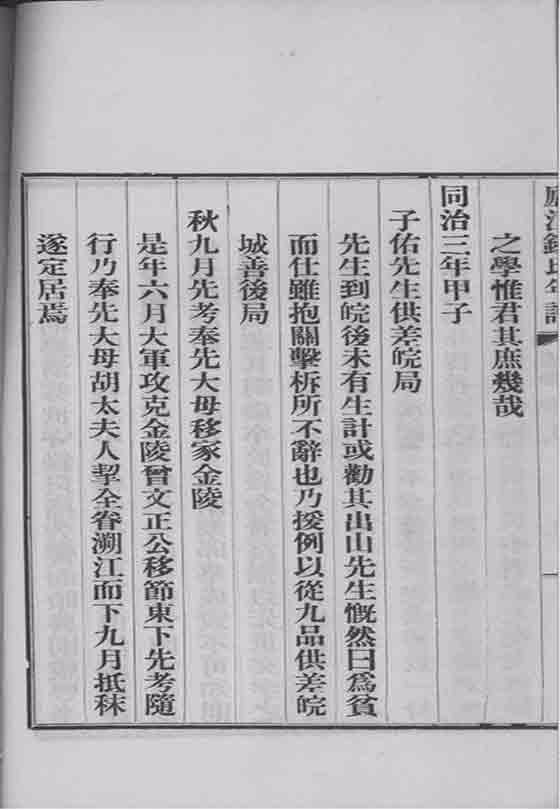 之學惟君其庶幾哉
同治三年甲子
子佑先生供差皖局
先生到皖後未有生計或勸其出山先生慨然曰爲貧
而仕雖抱關擊柝所不辭也乃援例以從九品供差皖
城善後局
秋九月先考奉先大母移家金陵
是年六月大軍攻克金陵曾文正公移節東下先考隨
行乃奉先大母胡太夫人挈全眷溯江而下九月抵秣
遂定居焉